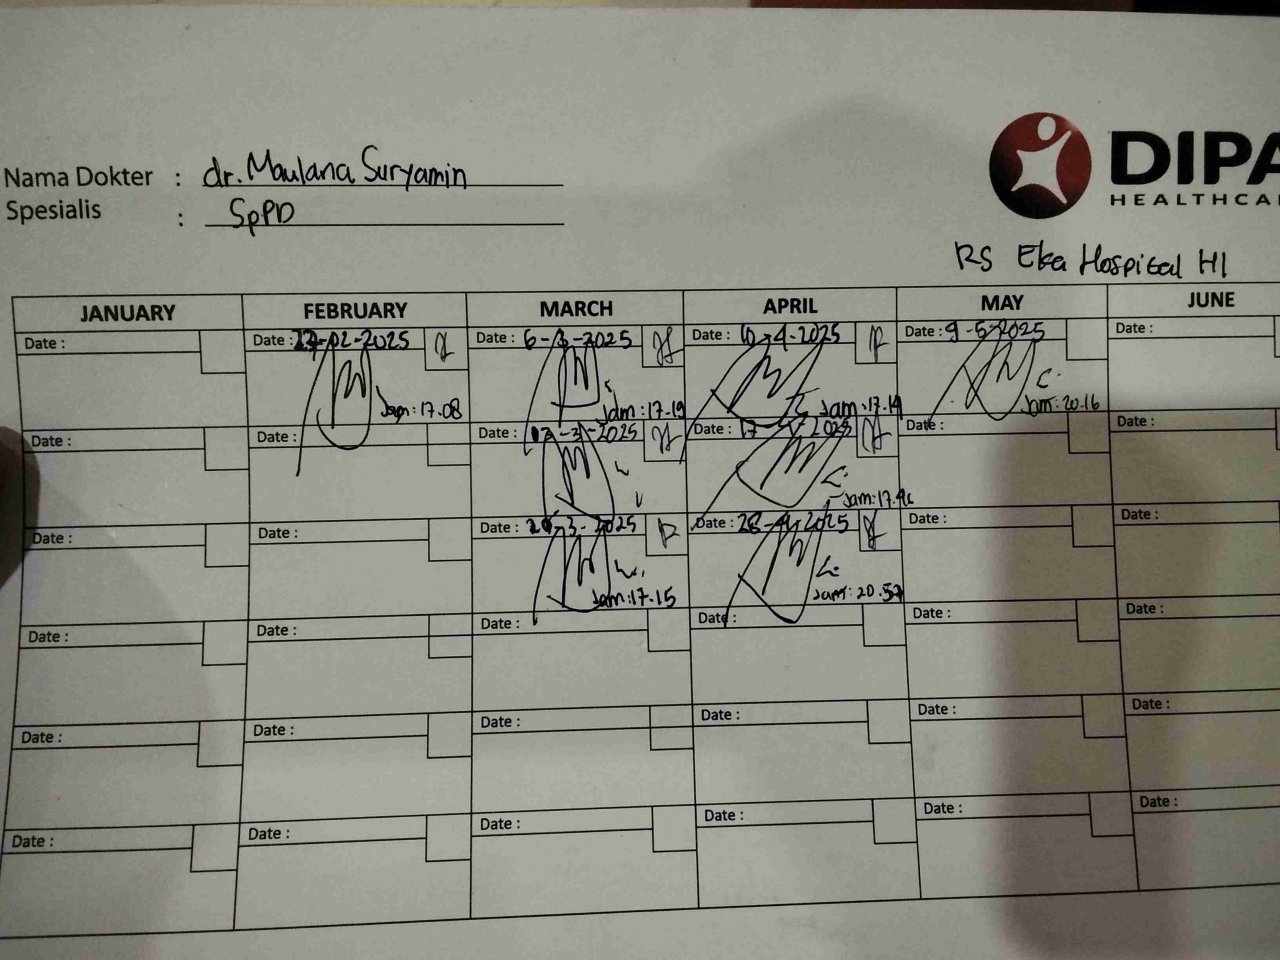 Nama Dokter : dr. Maulana Suryamin
Spesialis : SpPD
DIPA
HEALTHCA
RS Eka Hospital HI
JANUARY FEBRUARY MARCH APRIL MAY JUNE
Date : Date : -02-2025 Date : 6-3-2025 Date : 10-4-2025 Date : 9-5-2025 Date :
Jam: 17.08 Jam: 17.19 Jam: 17.19 Jam: 20.16
Date : Date : Date : -3-2025 Date : 17 2025 Date : Date :
Jam: 17.
Date : Date : Date : -3-2025 Date : 28-4-2025 Date : Date :
Jam: 17.15 Jam: 20.57
Date : Date : Date : Date : Date : Date :
Date : Date : Date : Date : Date : Date :
Date : Date : Date : Date : Date : Date :